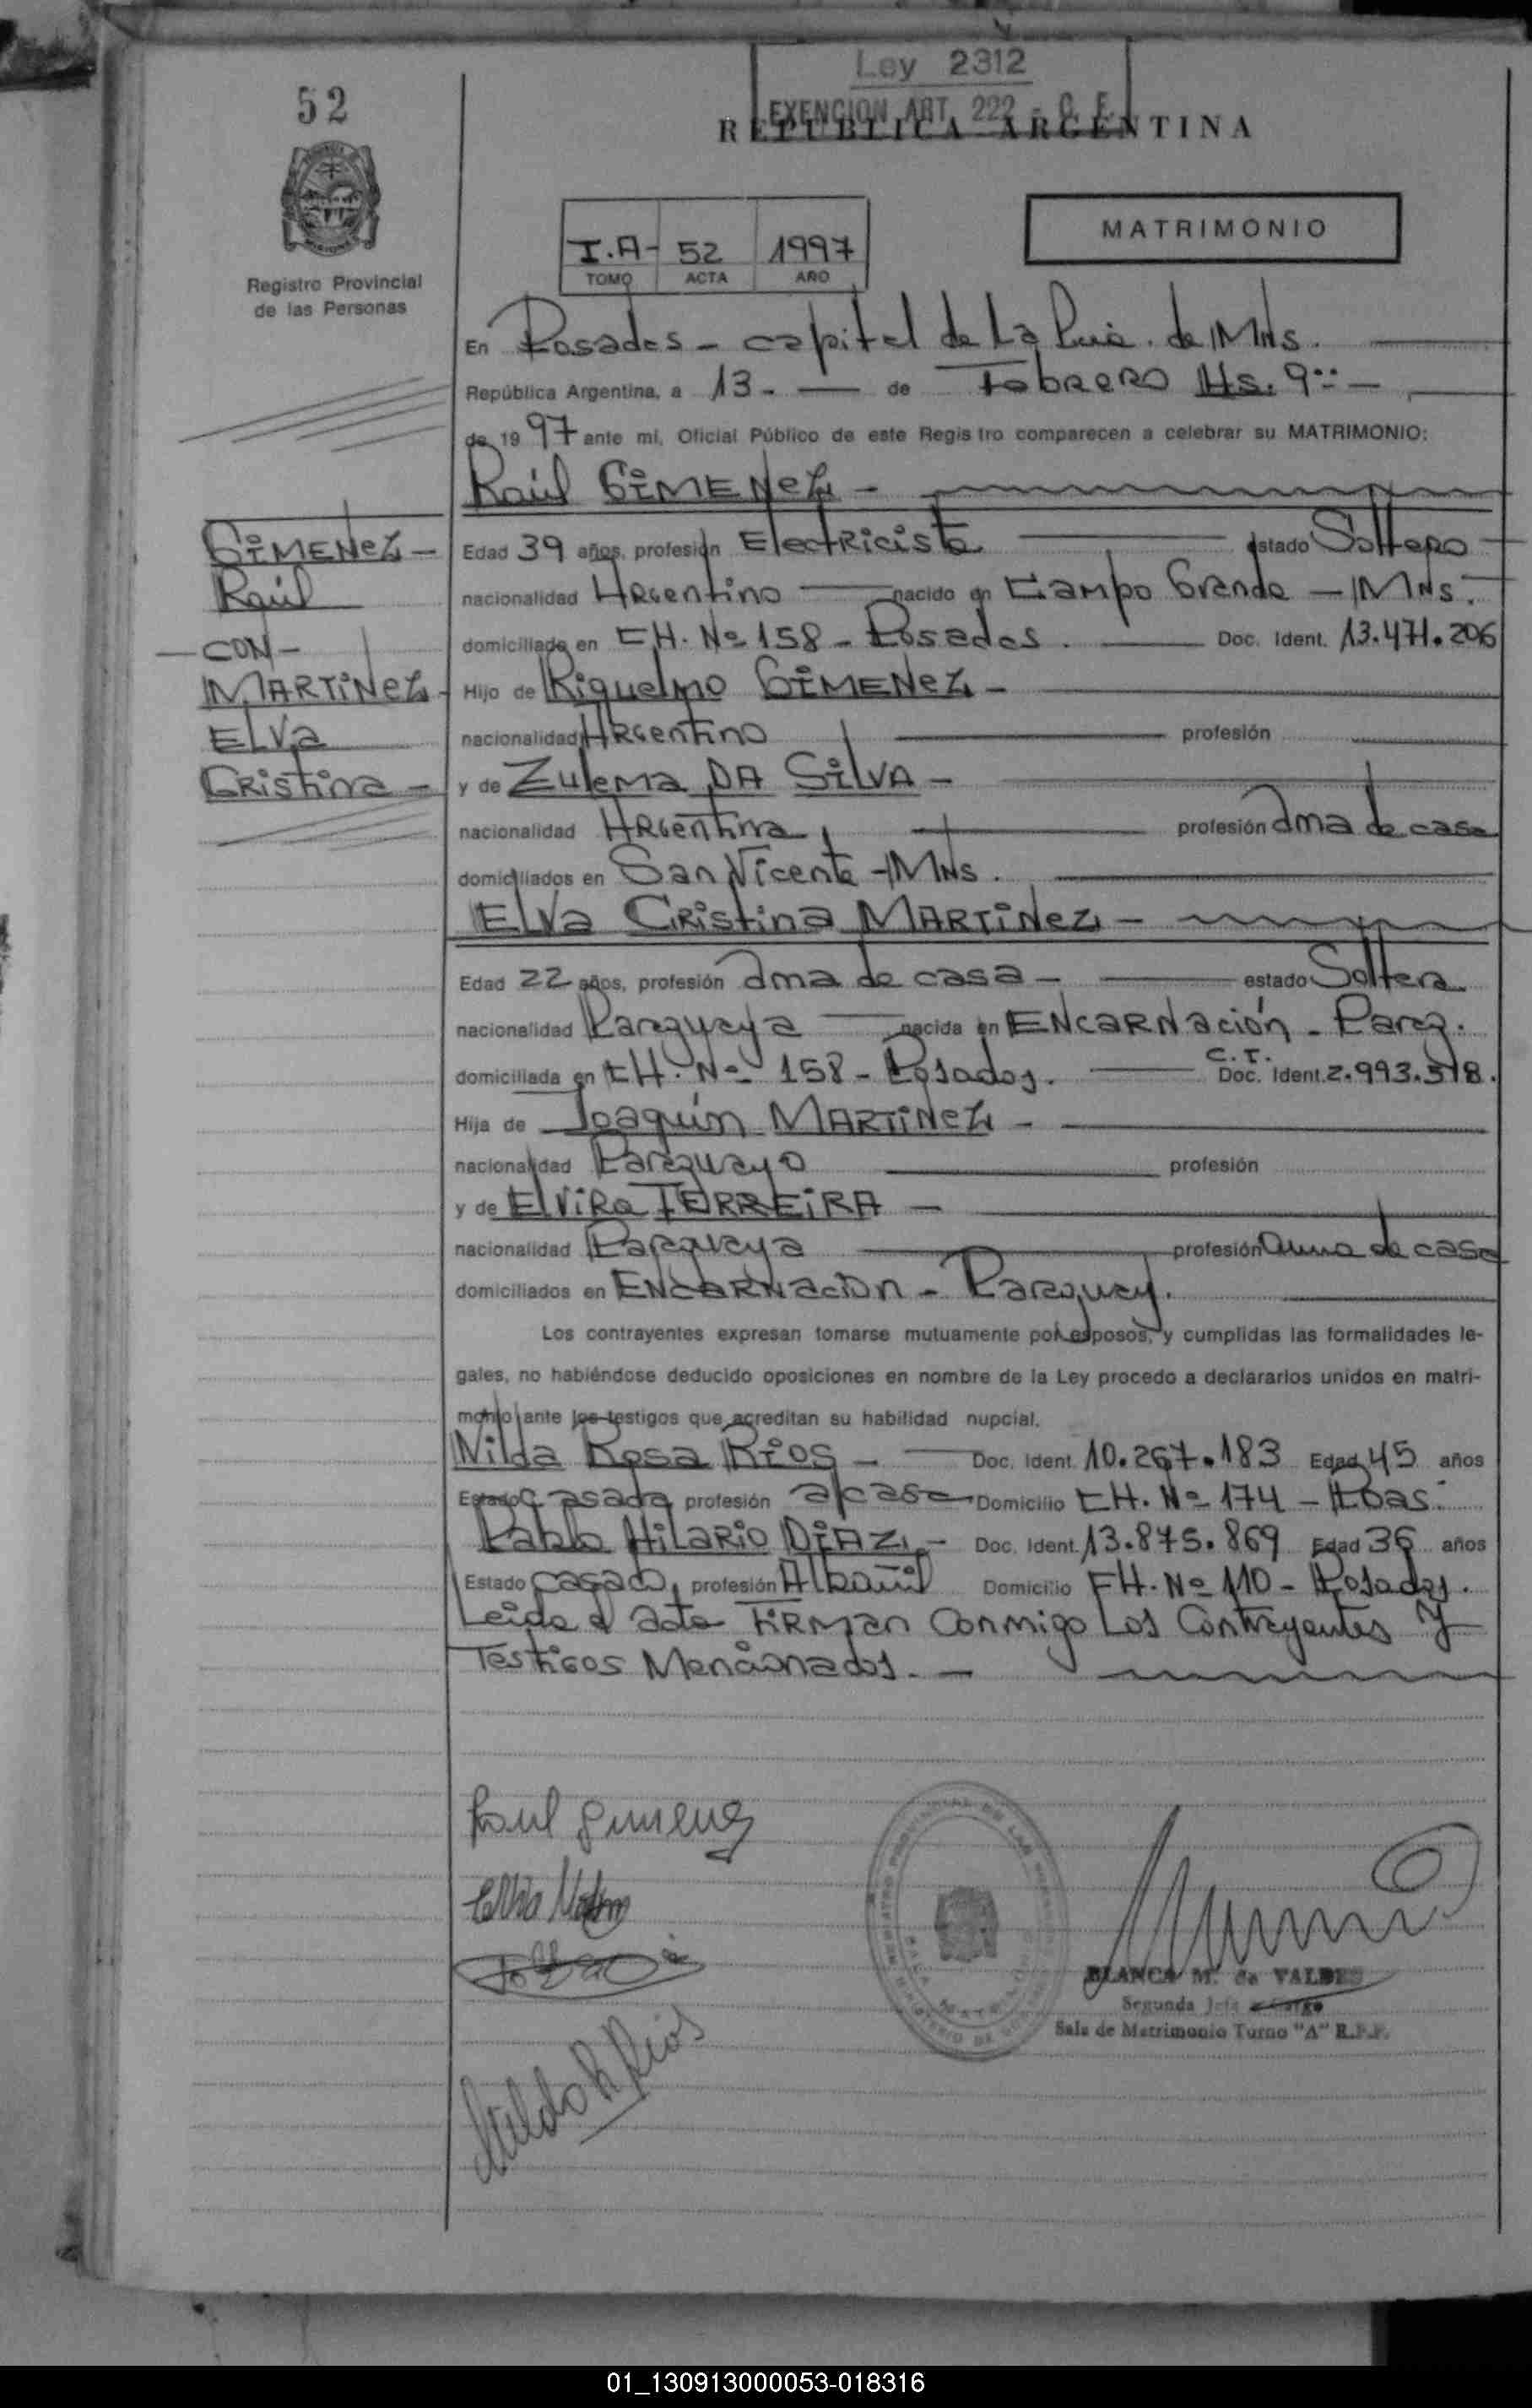 52
Ley 2312
EXENCION ART. 222 - C. F.
REPUBLICA ARGENTINA
Registro Provincial
de las Personas
I.A- 52 1997
TOMO ACTA AÑO
MATRIMONIO
En Posadas - capital de La Pcia. de Mns.
República Argentina, a 13. - de Febrero Hs. 9:: -
de 1997 ante mi, Oficial Público de este Registro comparecen a celebrar su MATRIMONIO:
Raúl GIMENEZ -
GIMENEZ -
Raúl
- CON -
MARTINEZ -
ELVA
CRistina -
Edad 39 años, profesión Electricista estado Soltero
nacionalidad Argentino nacido en Campo Grande - Mns.
domiciliado en CH. Nº 158 - Posadas. Doc. Ident. 13.471.206
Hijo de Riquelmo GIMENEZ -
nacionalidad Argentino profesión
y de Zulema DA SILVA -
nacionalidad Argentina, profesión ama de casa
domiciliados en San Vicente - Mns.
ELVA CRistina MARTINEZ -
Edad 22 años, profesión ama de casa - estado Soltera
nacionalidad Paraguaya nacida en ENCARNación - Parag.
C.I.
domiciliada en CH. Nº 158 - Posadas. Doc. Ident. 2.993.518.
Hija de Joaquín MARTINEZ -
nacionalidad Paraguayo profesión
y de Elvira FERREIRA -
nacionalidad Paraguaya profesión ama de casa
domiciliados en ENCARNación - Paraguay.
Los contrayentes expresan tomarse mutuamente por esposos, y cumplidas las formalidades le-
gales, no habiéndose deducido oposiciones en nombre de la Ley procedo a declararlos unidos en matri-
monio ante los testigos que acreditan su habilidad nupcial.
Nilda Rosa Ríos - Doc. Ident. 10.267.183 Edad 45 años
Estado Casada profesión a/casa Domicilio CH. Nº 174 - Pdas.
Pablo Hilario DIAZ - Doc. Ident. 13.875.869 Edad 36 años
Estado casado, profesión Albañil Domicilio CH. Nº 110 - Posadas.
Leida el acta FiRman Conmigo Los Contrayentes y
Testigos Mencionados. -
Raul Gimenez
BLANCA M. de VALDES
Segunda Jefe a Cargo
Sala de Matrimonio Turno "A" R.P.P.
Nilda R Rios
01_130913000053-018316